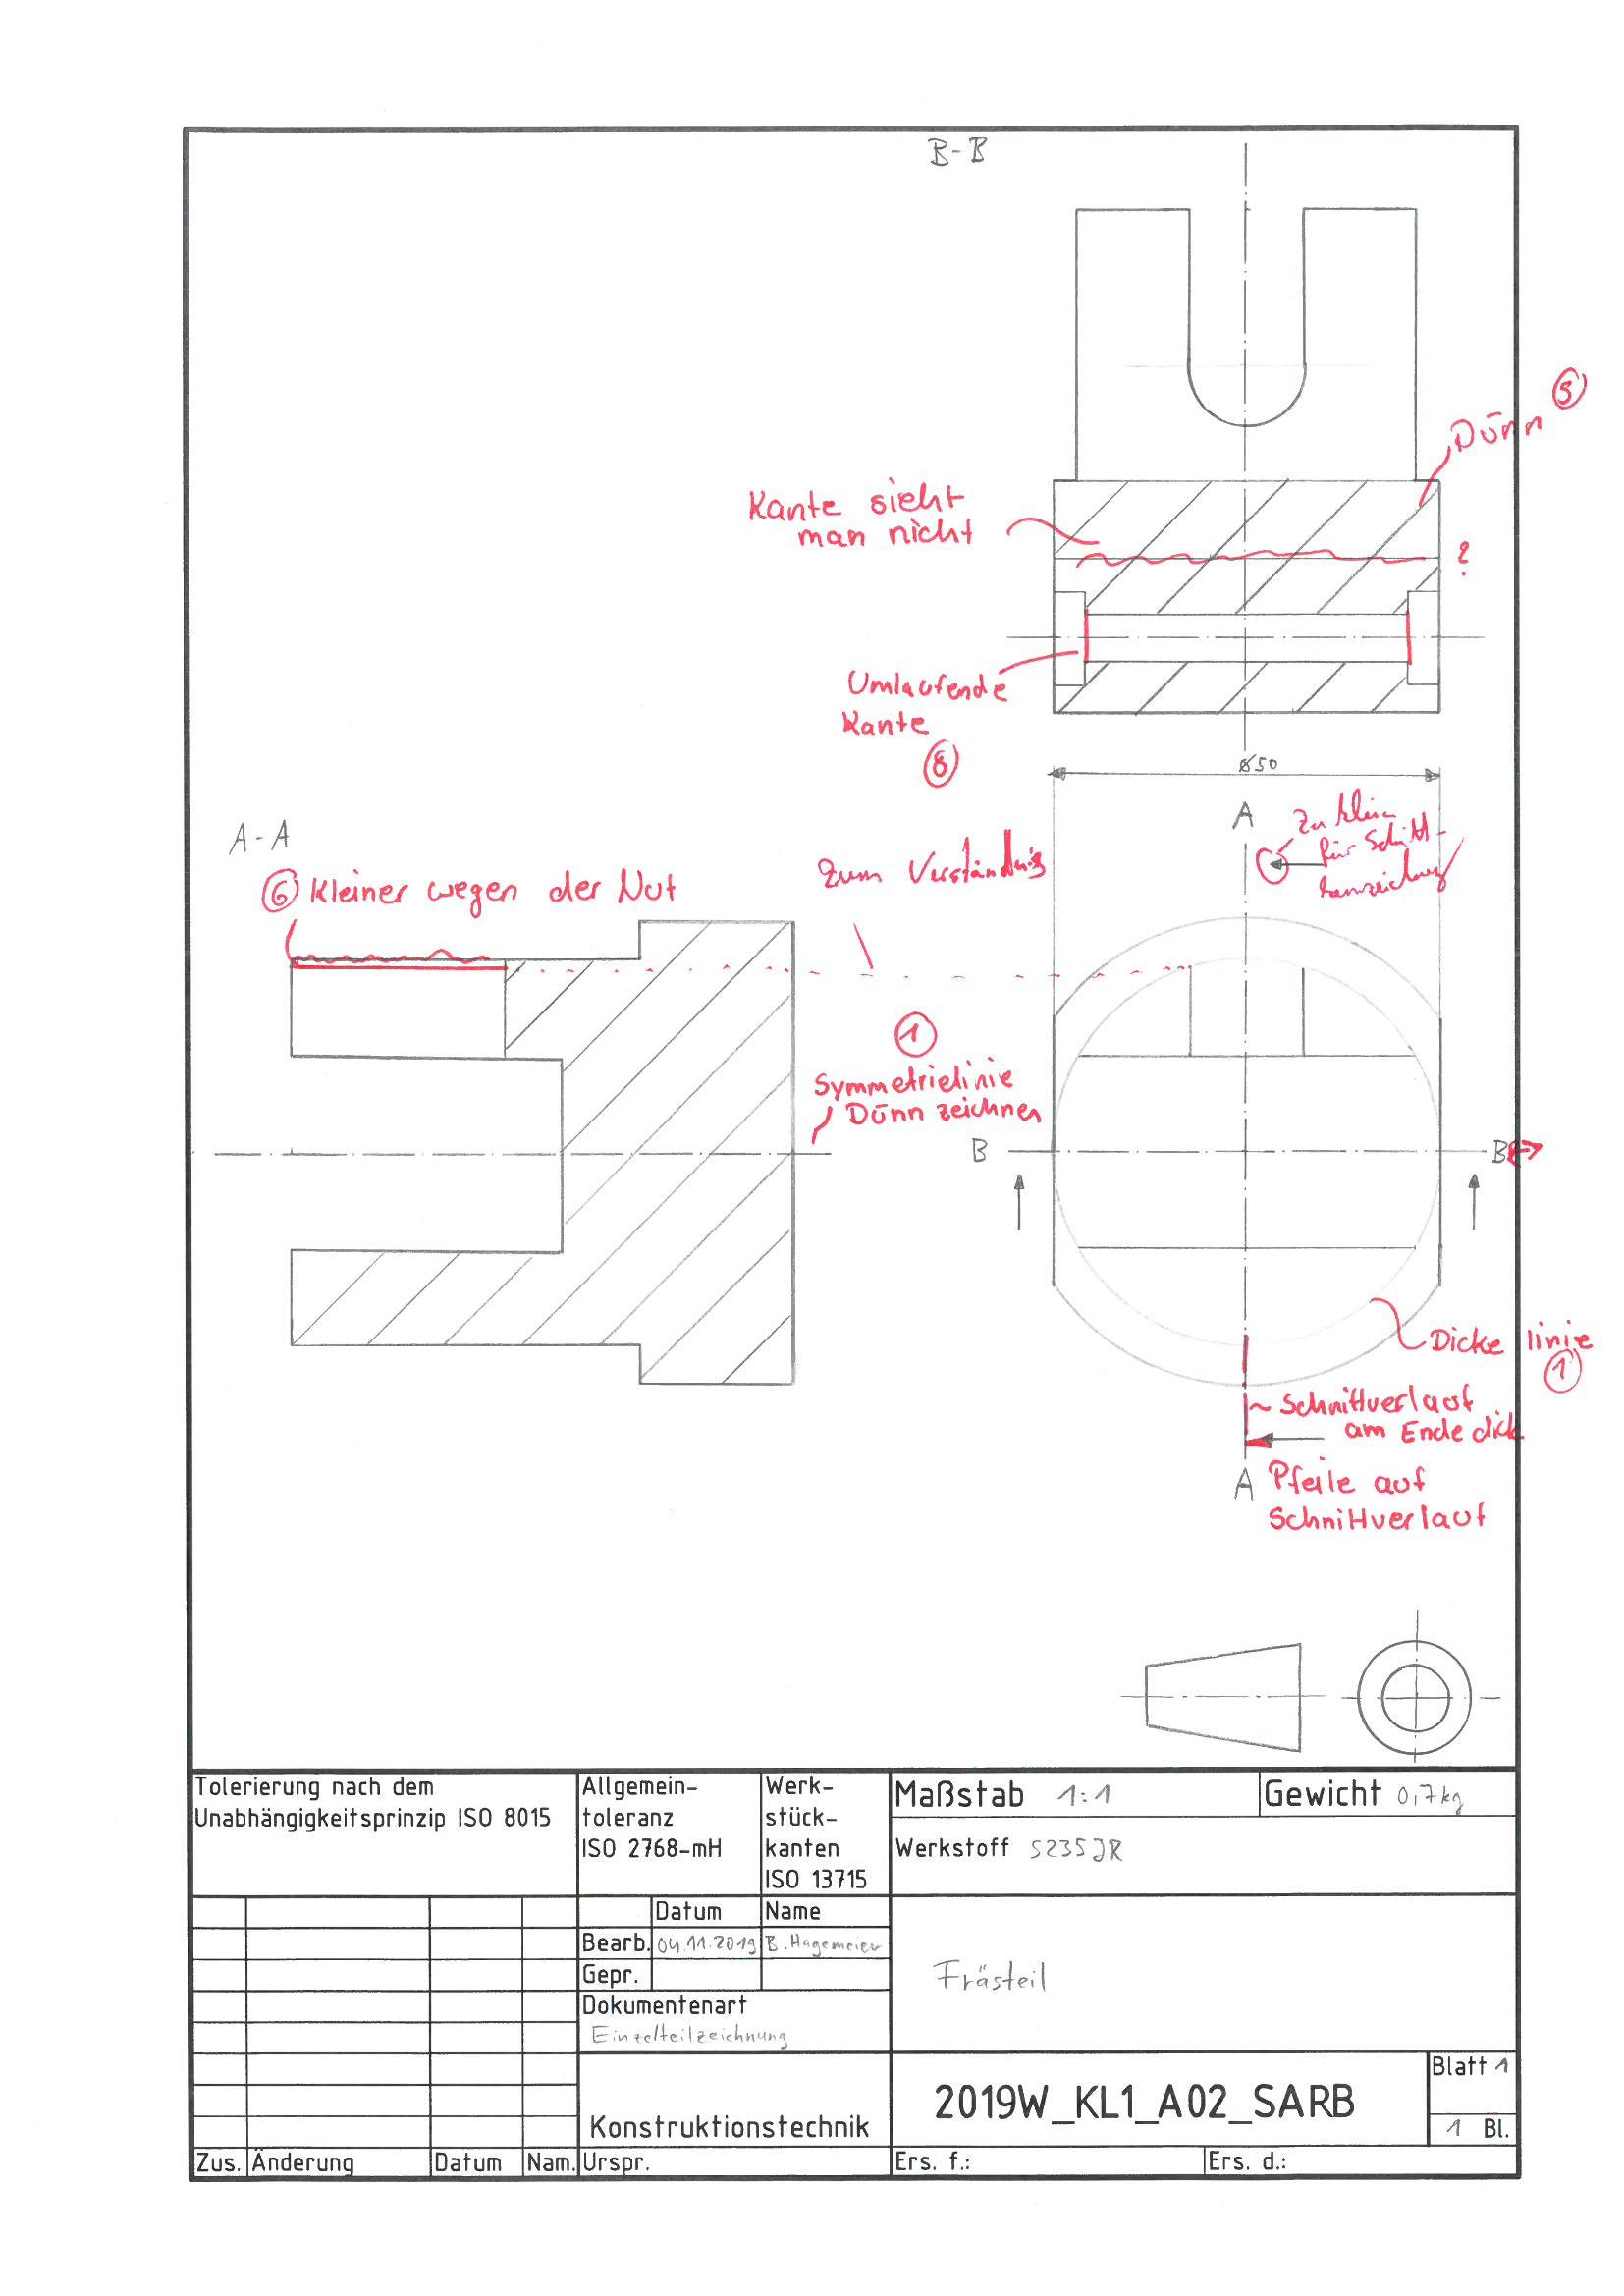 B-B
Dünn 5
Kante sieht
man nicht
?
Umlaufende
Kante
8
ø50
A-A
A
Zu klein
für Schnitt-
kennzeichnung
zum Verständnis
6 Kleiner wegen der Nut
1
Symmetrielinie
Dünn zeichnen
B
B
Dicke linie
1
Schnittverlauf
am Ende dick
A
Pfeile auf
Schnittverlauf
Tolerierung nach dem
Unabhängigkeitsprinzip ISO 8015
Allgemein-
toleranz
ISO 2768-mH
Werk-
stück-
kanten
ISO 13715
Maßstab 1:1
Gewicht 0,7kg
Werkstoff S235JR
Datum Name
Bearb. 04.11.2019 B. Hagemeier
Gepr.
Dokumentenart
Einzelteilzeichnung
Frästeil
Konstruktionstechnik
2019W_KL1_A02_SARB
Blatt 1
1 Bl.
Zus. Änderung Datum Nam. Urspr. Ers. f.: Ers. d.: